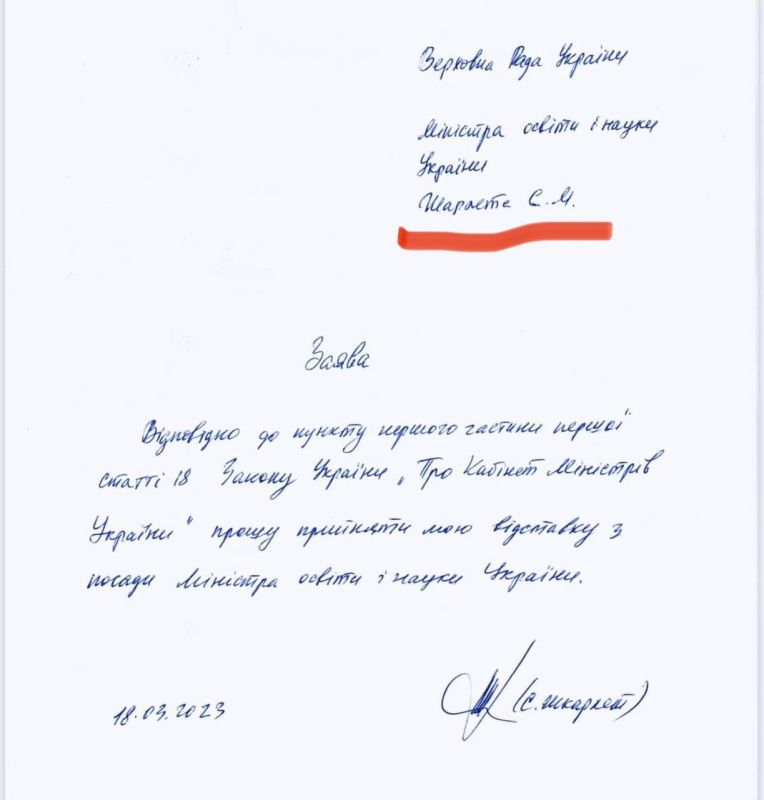 Верховна Рада України
Міністра освіти і науки
України
Шарлета С. М.
Заява
Відповідно до пункту першого частини першої
статті 18 Закону України „Про Кабінет Міністрів
України" прошу прийняти мою відставку з
посади Міністра освіти і науки України.
18.03.2023
(С. Шкарлет)